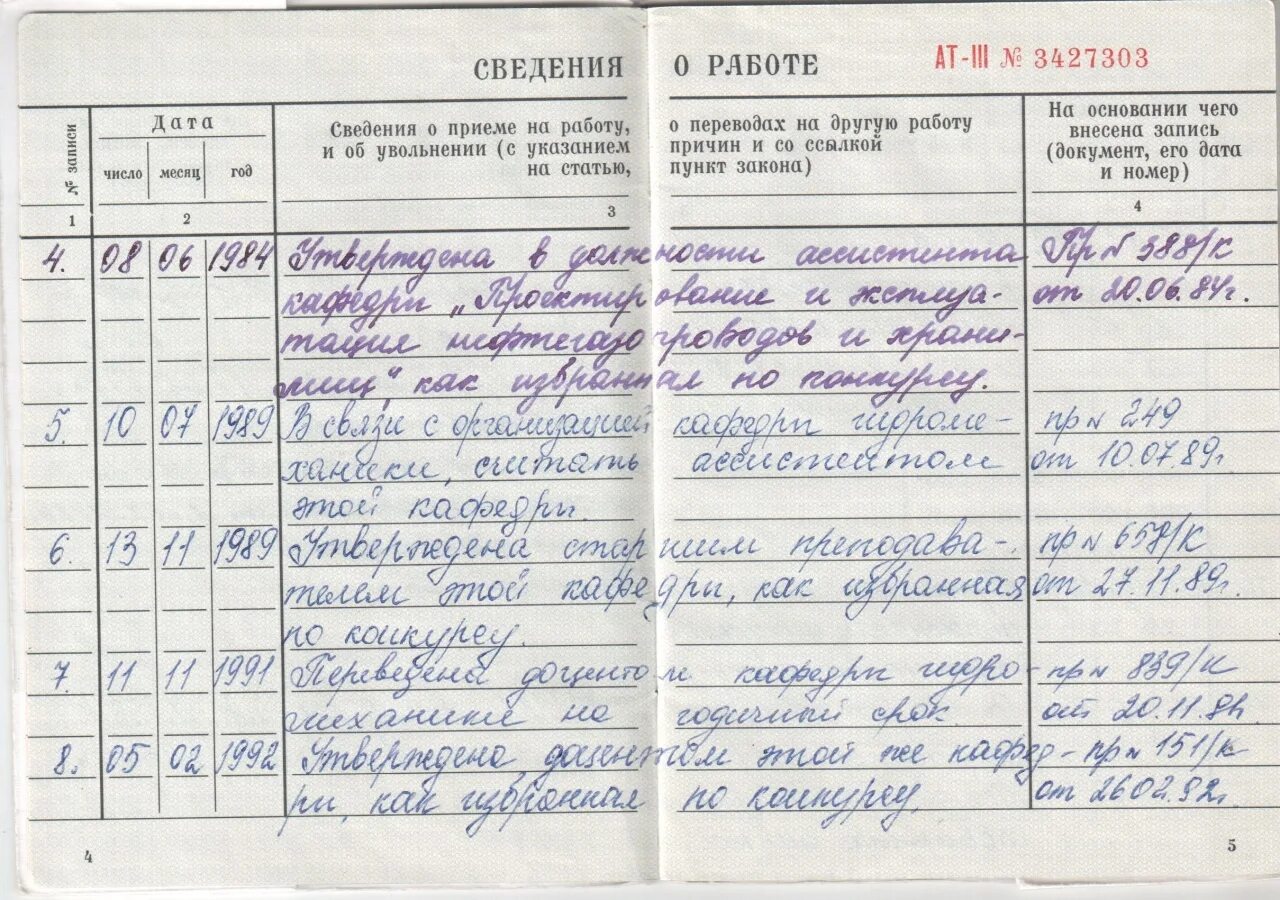 СВЕДЕНИЯ О РАБОТЕ АТ-III № 3427303
№ записи
Дата
число месяц год
Сведения о приеме на работу, о переводах на другую работу
и об увольнении (с указанием причин и со ссылкой
на статью, пункт закона)
На основании чего
внесена запись
(документ, его дата
и номер)
1 2 3 4
4. 08 06 1984 Утверждена в должности ассистента Пр № 388/К
кафедры „Проектирование и эксплуа- от 20.06.84г.
тация нефтегазопроводов и храни-
лищ", как избранная по конкурсу.
5. 10 07 1989 В связи с организацией кафедры гидроме- пр № 249
ханики, считать ассистентом от 10.07.89г.
этой кафедры.
6. 13 11 1989 Утверждена старшим преподава- пр № 658/К
телем этой кафедры, как избранная от 27.11.89г.
по конкурсу.
7. 11 11 1991 Переведена доцентом кафедры гидро- пр № 839/К
механики на годичный срок. от 20.11.91г.
8. 05 02 1992 Утверждена доцентом этой же кафед- пр № 151/К
ры, как избранная по конкурсу. от 26.02.92г.
4 5